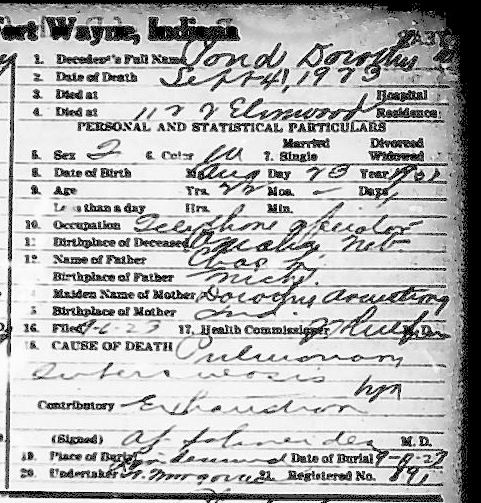 Fort Wayne, Indiana
1. Decedent's Full Name Pond Dorothy
2. Date of Death Sept 4, 1923
3. Died at Hospital
4. Died at Elmwood Residence
PERSONAL AND STATISTICAL PARTICULARS
Married Divorced
5. Sex F 6. Color W 7. Single Widowed
8. Date of Birth Mo. Aug Day 23 Year
9. Age Yrs. 22 Mos. — Days
Less than a day Hrs. Min.
10. Occupation Telephone operator
11. Birthplace of Deceased Omaha Neb.
12. Name of Father Chas
Birthplace of Father Mich.
Maiden Name of Mother Dorothy Armstrong
Birthplace of Mother Ind.
16. Filed 9-6-23 17. Health Commissioner M.D.
18. CAUSE OF DEATH Pulmonary
tuberculosis
Contributory Exhaustion
(Signed) M. D.
19. Place of Burial Date of Burial
20. Undertaker 21. Registered No. 891